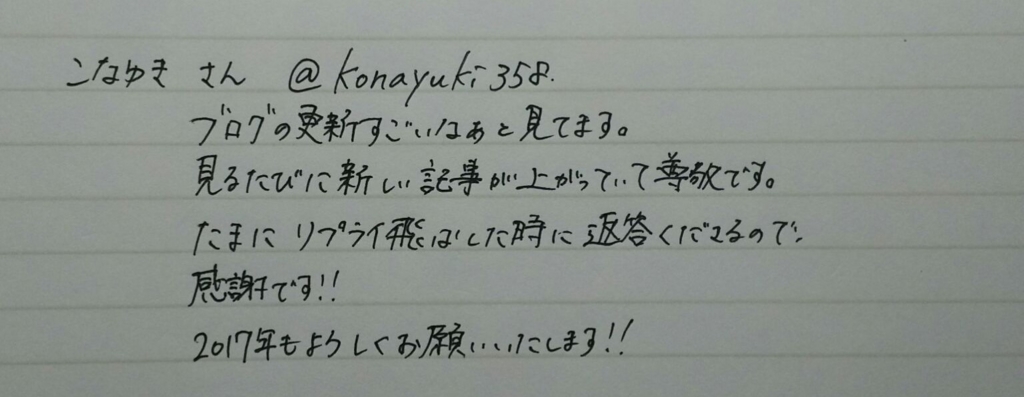 こなゆき さん @konayuki358.
ブログの更新すごいなぁと見てます。
見るたびに新しい記事が上がっていて尊敬です。
たまにリプライ飛ばした時に返答くださるので、
感謝です!!
2017年もよろしくお願いいたします!!